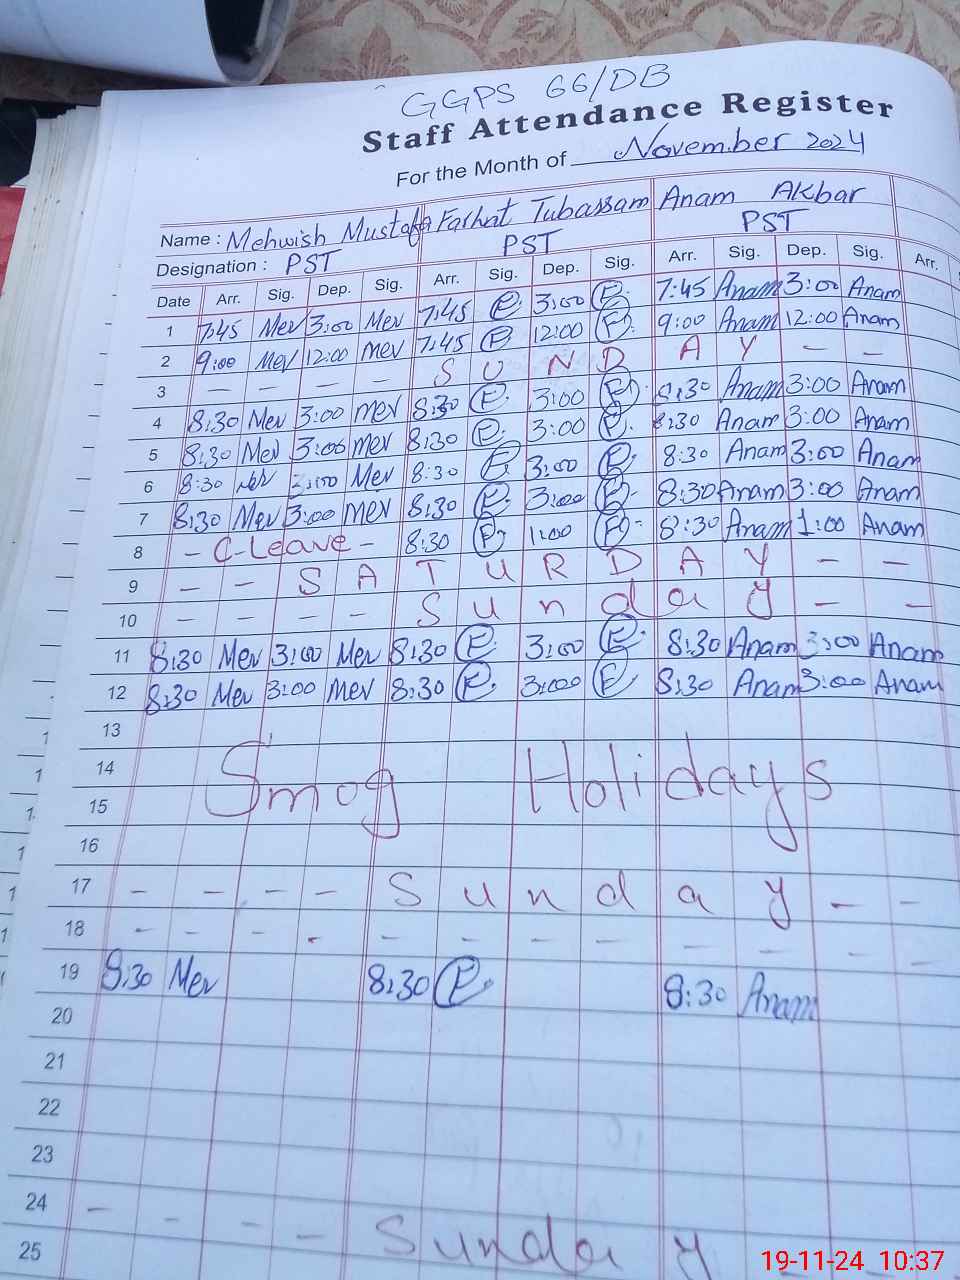 GGPS 66/DB
Staff Attendance Register
For the Month of November 2024
Name : Mehwish Mustafa Farhat Tubassam Anam Akbar
Designation : PST PST PST
Date Arr. Sig. Dep. Sig. Arr. Sig. Dep. Sig. Arr. Sig. Dep. Sig. Arr.
1 7:45 Mev 3:00 Mev 7:45 F 3:00 F 7:45 Anam 3:00 Anam
2 9:00 Mev 12:00 Mev 7:45 F 12:00 F 9:00 Anam 12:00 Anam
3 - - - - S U N D A Y - -
4 8:30 Mev 3:00 Mev 8:30 F 3:00 F 8:30 Anam 3:00 Anam
5 8:30 Mev 3:00 Mev 8:30 F 3:00 F 8:30 Anam 3:00 Anam
6 8:30 Mev 3:00 Mev 8:30 F 3:00 F 8:30 Anam 3:00 Anam
7 8:30 Mev 3:00 Mev 8:30 F 3:00 F 8:30 Anam 3:00 Anam
8 - C-Leave - 8:30 F 1:00 F 8:30 Anam 1:00 Anam
9 - - S A T U R D A Y - -
10 - - - - S u n d a y - -
11 8:30 Mev 3:00 Mev 8:30 F 3:00 F 8:30 Anam 3:00 Anam
12 8:30 Mev 3:00 Mev 8:30 F 3:00 F 8:30 Anam 3:00 Anam
13
14 Smog Holidays
15
16
17 - - - - S u n d a y - -
18 - - - - - - - - - - - -
19 8:30 Mev 8:30 F 8:30 Anam
20
21
22
23
24 - - - - S u n d a y
25
19-11-24 10:37